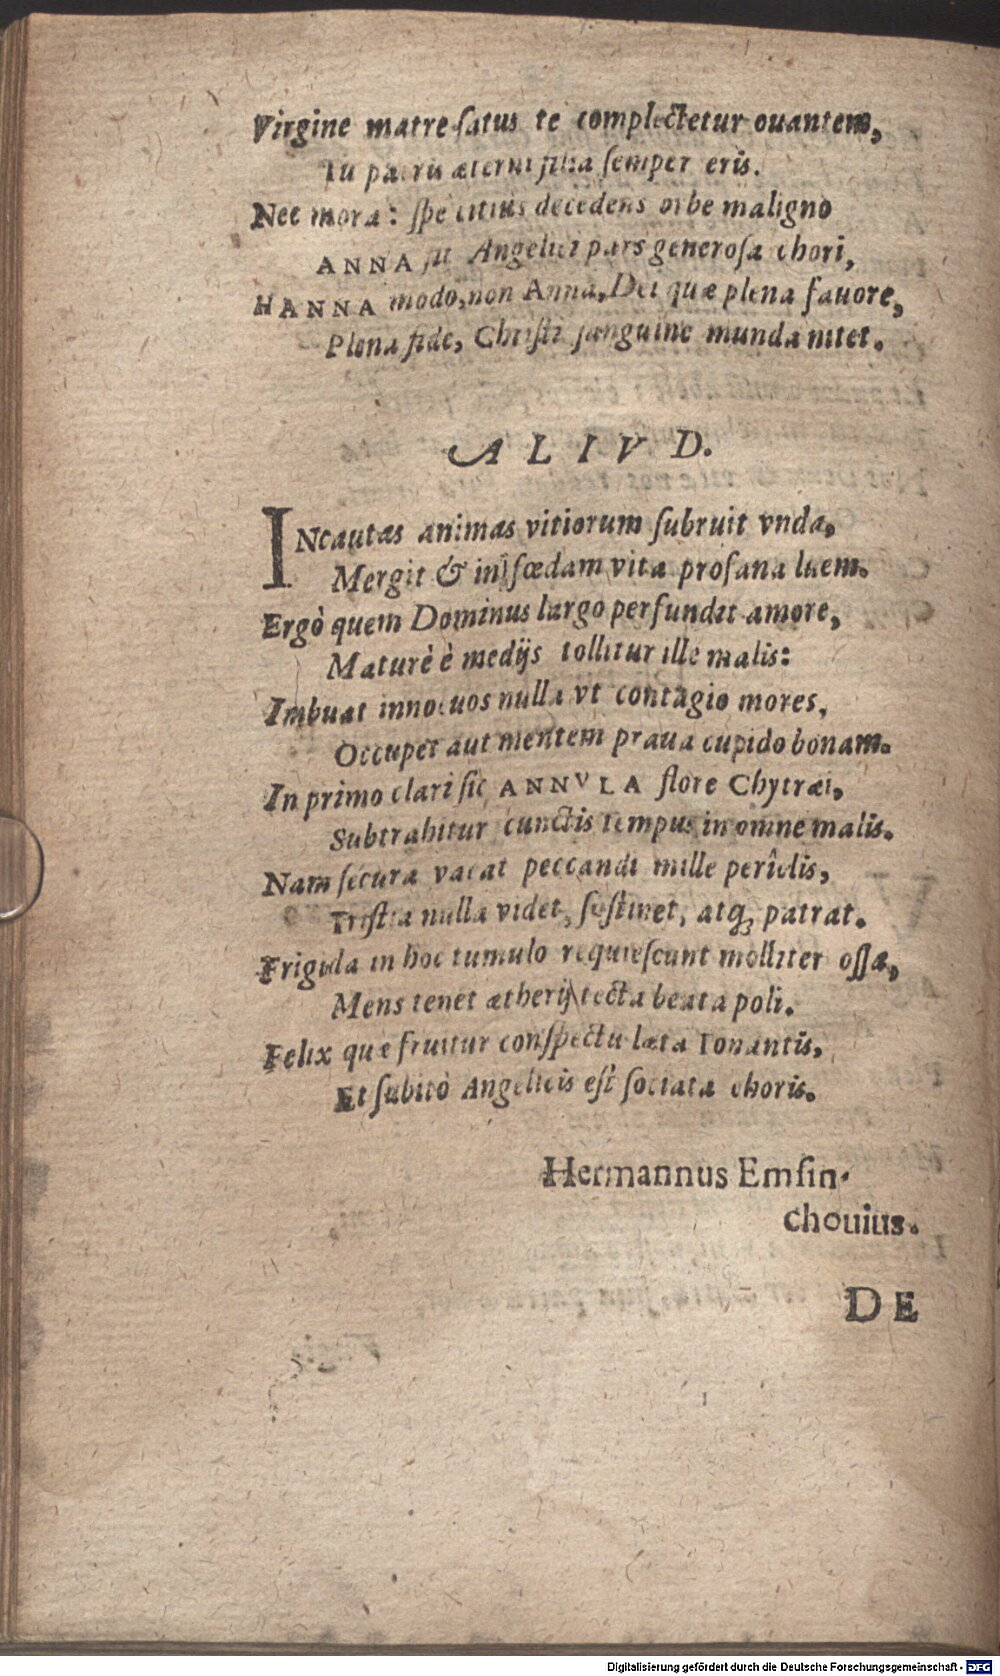 Virgine matre ſatus te complectetur ouantem,
Tu patris æterni filia ſemper eris.
Nec mora: ſpe citius decedens orbe maligno
ANNA fit Angelici pars generoſa chori,
HANNA modo, non Anna, Dei quæ plena fauore,
Plena fide, Chriſti ſanguine munda nitet.
ALIVD.
INcautas animas vitiorum ſubruit vnda,
Mergit & in fœdam vita profana luem.
Ergò quem Dominus largo perfundit amore,
Maturè è medijs tollitur ille malis:
Imbuat innocuos nulla vt contagio mores,
Occupet aut mentem praua cupido bonam.
In primo clari ſic ANNVLA flore Chytræi,
Subtrahitur cunctis tempus in omne malis.
Nam ſecura vacat peccandi mille perîclis,
Triſtia nulla videt, ſuſtinet, atq; patrat.
Frigida in hoc tumulo requieſcunt molliter oſſa,
Mens tenet ætherij tecta beata poli.
Felix quæ fruitur conſpectu læta Tonantis,
Et ſubitò Angelicis eſt ſociata choris.
Hermannus Emſin-
chouius.
DE
Digitalisierung gefördert durch die Deutsche Forschungsgemeinschaft - DFG